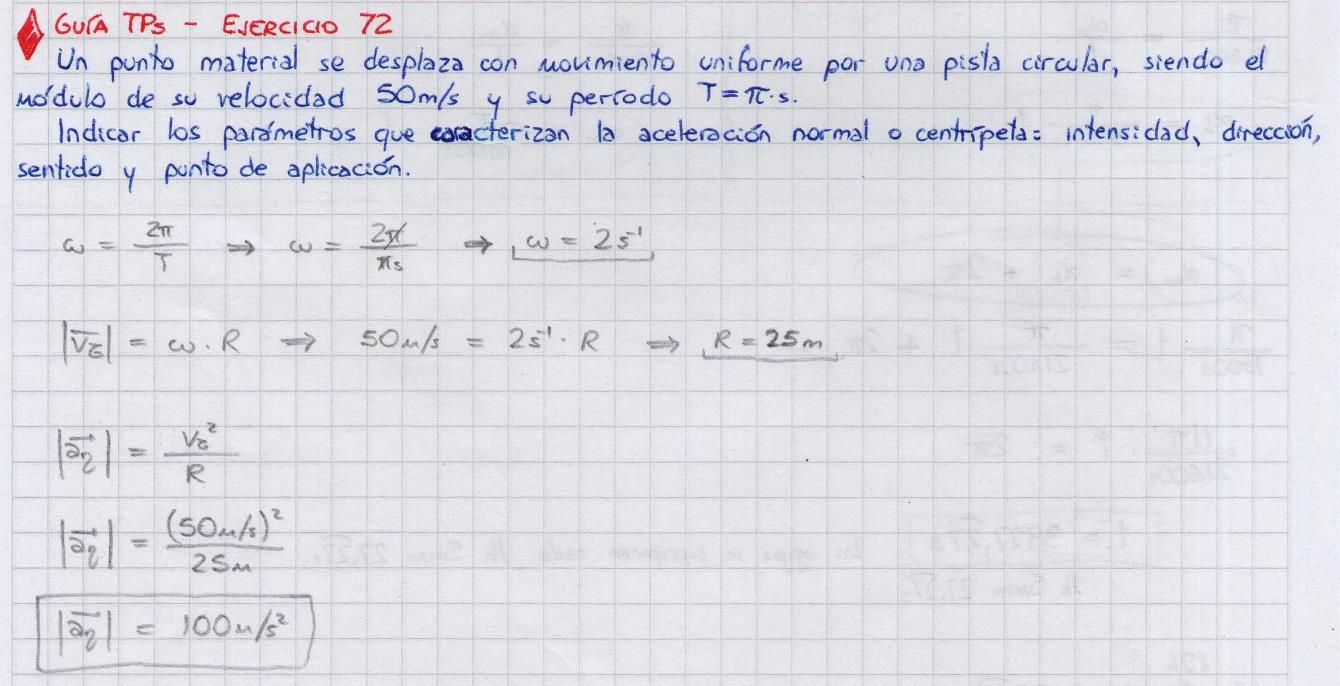 GUÍA TPs - EJERCICIO 72
Un punto material se desplaza con movimiento uniforme por una pista circular, siendo el
módulo de su velocidad 50m/s y su período T=π·s.
Indicar los parámetros que caracterizan la aceleración normal o centrípeta: intensidad, dirección,
sentido y punto de aplicación.
ω = 2π/T ⇒ ω = 2π/πs ⇒ ω = 2s⁻¹
|v⃗τ| = ω · R ⇒ 50m/s = 2s⁻¹ · R ⇒ R = 25m
|a⃗η| = vτ²/R
|a⃗η| = (50m/s)²/25m
|a⃗η| = 100m/s²